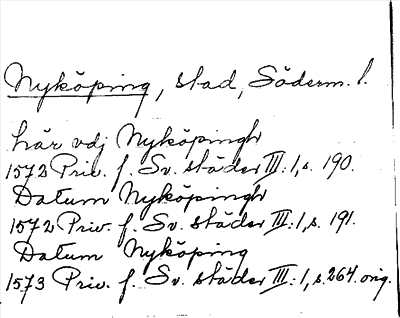 Nyköping, stad, Söderm. l.
här vdj Nyköpingh
1572 Priv. f. Sv. städer III:1, s. 190.
Datum Nyköpingh
1572 Priv. f. Sv. städer III:1, s. 191.
Datum Nyköping
1573 Priv. f. Sv. städer III:1, s. 264. orig.